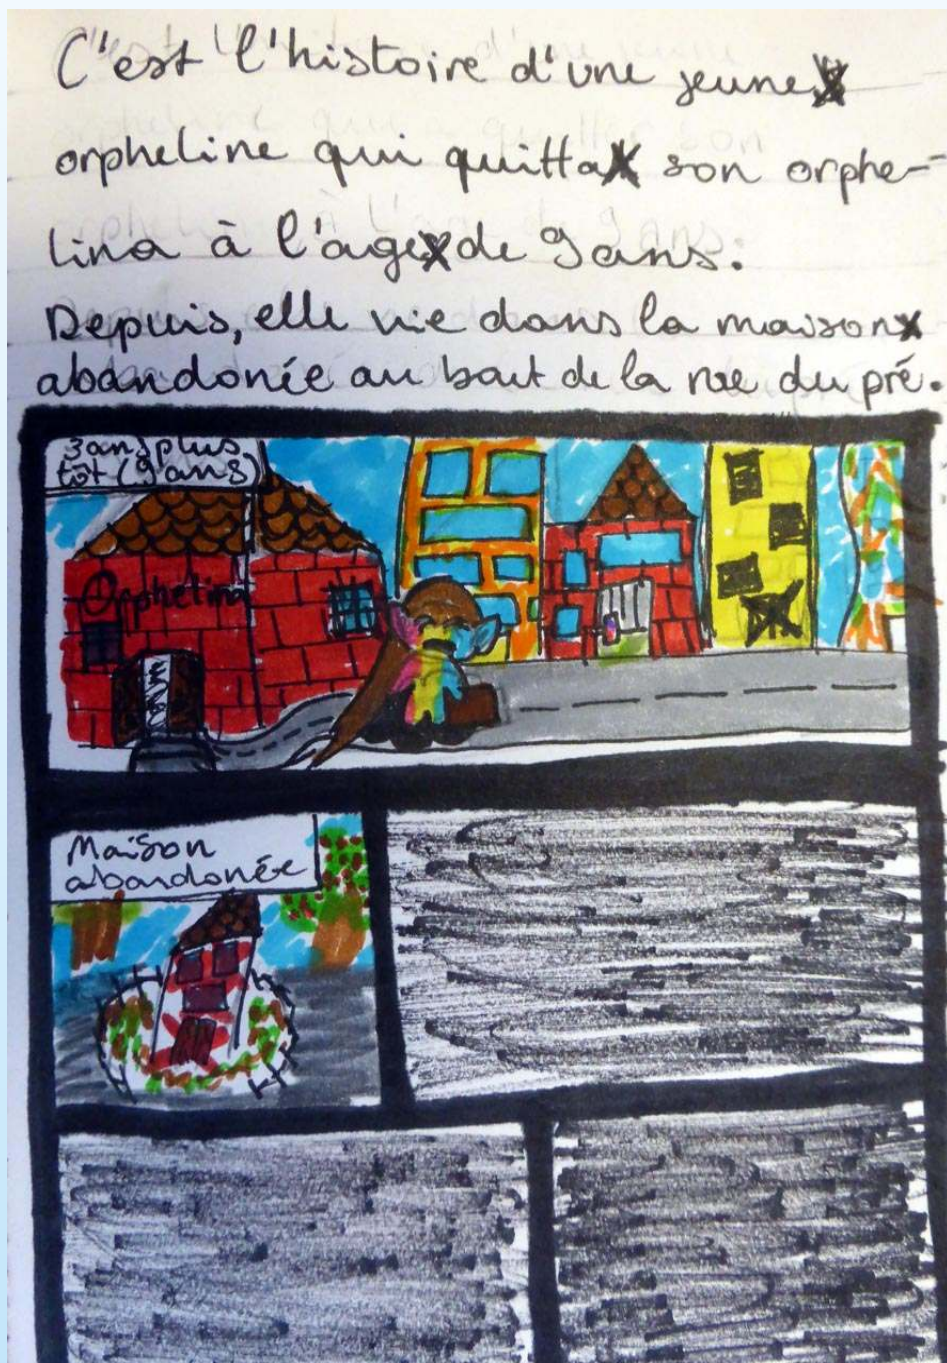 C'est l'histoire d'une jeune
orpheline qui quitta son orphe-
lina à l'age de 9 ans.
Depuis, elle vie dans la maison
abandonée au bout de la rue du pré.
3 ans plus
tôt (9 ans)
Orphelina
Maison
abandonée